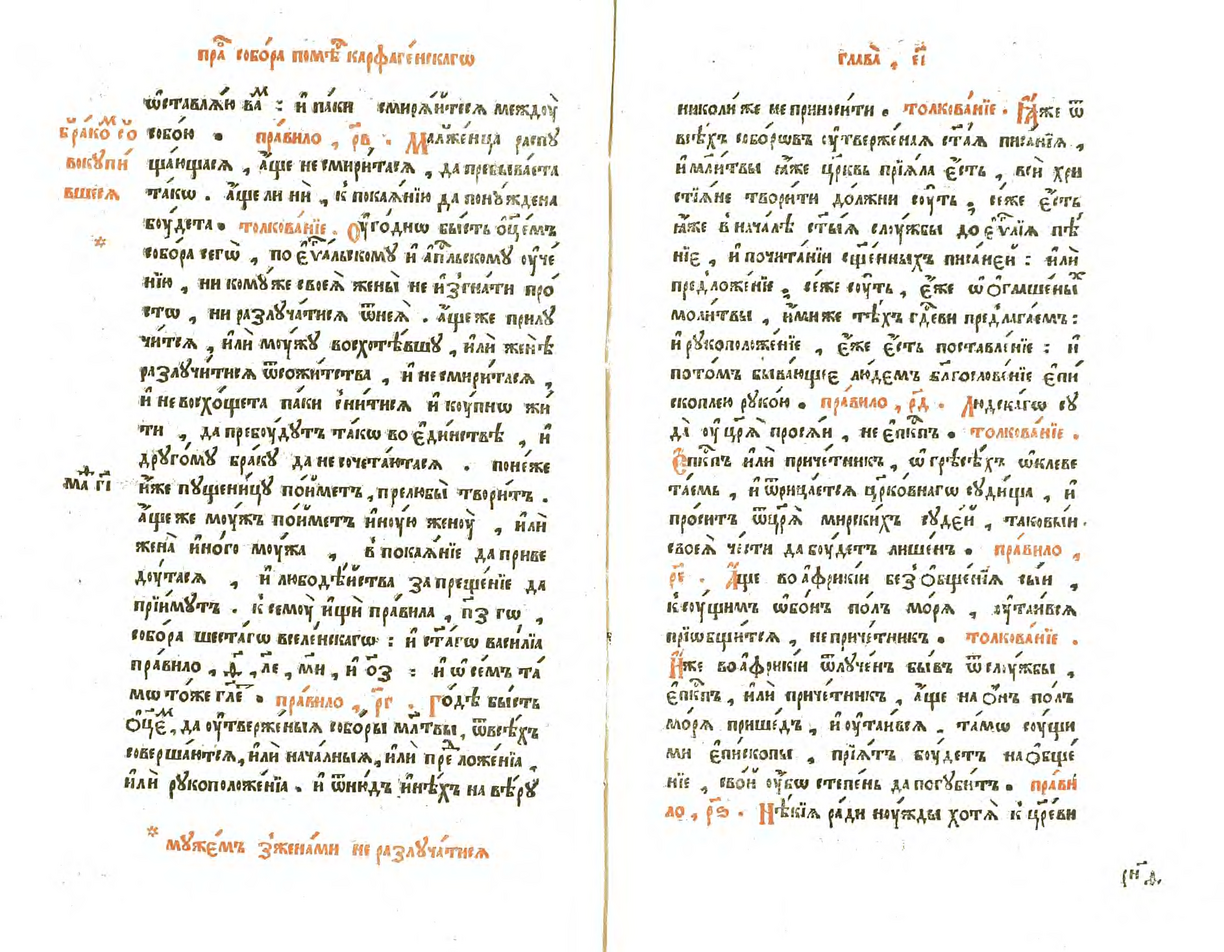 пра́ собо́ра помѣ́ карѳаге́нскагѡ
ѡ҆ставлѧ́ю ва́м : и҆ па́ки смирѧ́итесѧ междоу̀
собо́ю . пра́вило , р҃в . Малже́нца распу
бра́ко со
вокупи́
вшеесѧ
*
ща́ющасѧ , а҆́ще не смири́тасѧ , да пребыва́ета
та́кѡ . а҆́ще ли ни̂ , к покаѧ́нїю да пону́ждена
боу́дета . толкова́нїе . Оу҆го́днѡ бы́сть ѻ҆ц҃е́мъ
собо́ра сегѡ̀ , по є҆ѵⷢ҇альскому и҆ а҆пⷭ҇льскому оу҆че
нїю , ни кому́же своеѧ̀ жены̀ не и҆згна́ти про́
стѡ , ни разлуча́тисѧ ѿ неѧ̀ . а҆́ще же прилу
чи́тсѧ , и҆лѝ моу́жу восхотѣ́вшу , и҆лѝ женѣ̀
разлучи́тисѧ ѿ сожи́тства , и҆ не смири́тасѧ ,
и҆ не восхо́щета па́ки сни́тисѧ и҆ коу́пнѡ жи́
ти , да пребоу́дутъ та́кѡ во є҆ди́нствѣ , и҆
друго́му бра́ку да не сочета́ютасѧ . поне́же
маⷴ г҃і
и҆́же пуще́ницу пои́метъ , прелюбы̀ твори́тъ .
а҆́ще же моу́жъ пои́метъ и҆но́ую жено́у , и҆лѝ
жена̀ и҆но́го моу́жа , в покаѧ́нїе да приве
доу́тасѧ , и҆ любодѣ́йства запреще́нїе да
прїи́мутъ . к семоу̀ и҆щѝ пра́вила , п҃з гѡ ,
собо́ра шеста́гѡ вселе́нскагѡ : и҆ ст҃а́гѡ васи́лїа
пра́вило , д҃ , л҃е , м҃и , и҆ ѻ҃з : и҆ ѡ҆ се́мъ та́
мѡ то́же гл҃е . пра́вило , р҃г . Го́дѣ бы́сть
ѻ҆ц҃е́м , да оу҆тверже́ныѧ собо́ры мл҃твы , ѿ всѣ́хъ
соверша́ютсѧ , и҆лѝ нача́лныѧ , и҆лѝ предложе́нїа ,
и҆лѝ рукоположе́нїа . и҆ ѿню́дъ и҆нѣ́хъ на вѣ́ру
* муже́мъ з женами не разлуча́тисѧ
глава̀ , е҃і
николи́же не приноси́ти . толкова́нїе . Ꙗ҆́же ѿ
всѣ́хъ собо́рѡвъ оу҆тверже́наѧ ст҃а́ѧ писа́нїѧ ,
и҆ мл҃и́твы ꙗ҆́же цр҃квь прїѧ́ла є҆́сть , вси̂ хри
стїѧ́не твори́ти до́лжни соу́ть , се́же є҆́сть
ꙗ҆́же в нача́лѣ ст҃ы́ѧ слоу́жбы до є҆ѵⷢ҇лїѧ пѣ́
нїе , и҆ почита́нїи сщ҃е́нныхъ писа́неи : и҆лѝ
предложе́нїе , се́же соу́ть , є҆́же ѡ҆ ѻ҆глаше́ныхъ
моли́твы , и҆́миже тѣ́хъ гдⷭ҇еви предлага́емъ :
и҆ рукоположе́нїе , є҆́же є҆́сть поставле́нїе : и҆
пото́мъ быва́ющеє лю́демъ бл҃гослове́нїе є҆пи́
скоплею руко́ю . пра́вило , р҃д . Людска́гѡ су
да̀ оу҆ цр҃ѧ̀ просѧ́и , не є҆пⷭ҇кпъ . толкова́нїе .
Є҆пⷭ҇кпъ и҆лѝ приче́тникъ , ѡ҆ грѣсѣ́хъ ѡ҆клеве
та́емь , и҆ ѿрица́етсѧ цр҃ко́внагѡ суди́ща , и҆
про́ситъ ѿ цр҃ѧ̀ ми́рскихъ суде́й , таковы́и .
своеѧ̀ че́сти да боу́детъ лише́нъ . пра́вило ,
р҃е . А҆́ще во а҆фрики́и без ѻ҆бще́нїѧ сы́и ,
к соу́щимъ ѡ҆бо́нъ по́лъ мо́рѧ , оу҆таи́всѧ
прїѡбщи́тсѧ , не приче́тникъ . толкова́нїе .
И҆́же во а҆фрики́и ѿлуче́нъ бы́въ ѿ слоу́жбы ,
є҆пⷭ҇кпъ , и҆лѝ приче́тникъ , а҆́ще на ѻ҆́нъ по́лъ
мо́рѧ прише́дъ , и҆ оу҆таи́всѧ , та́мѡ соу́щи
ми є҆пи́скопы , прїѧ́тъ боу́детъ на ѻ҆бще́
нїе , сво́й оу҆́бѡ степе́нь да погуби́тъ . пра́ви
ло , р҃ѕ . Нѣ́кїѧ ра́ди ноу́жды хотѧ̀ к цр҃е́ви